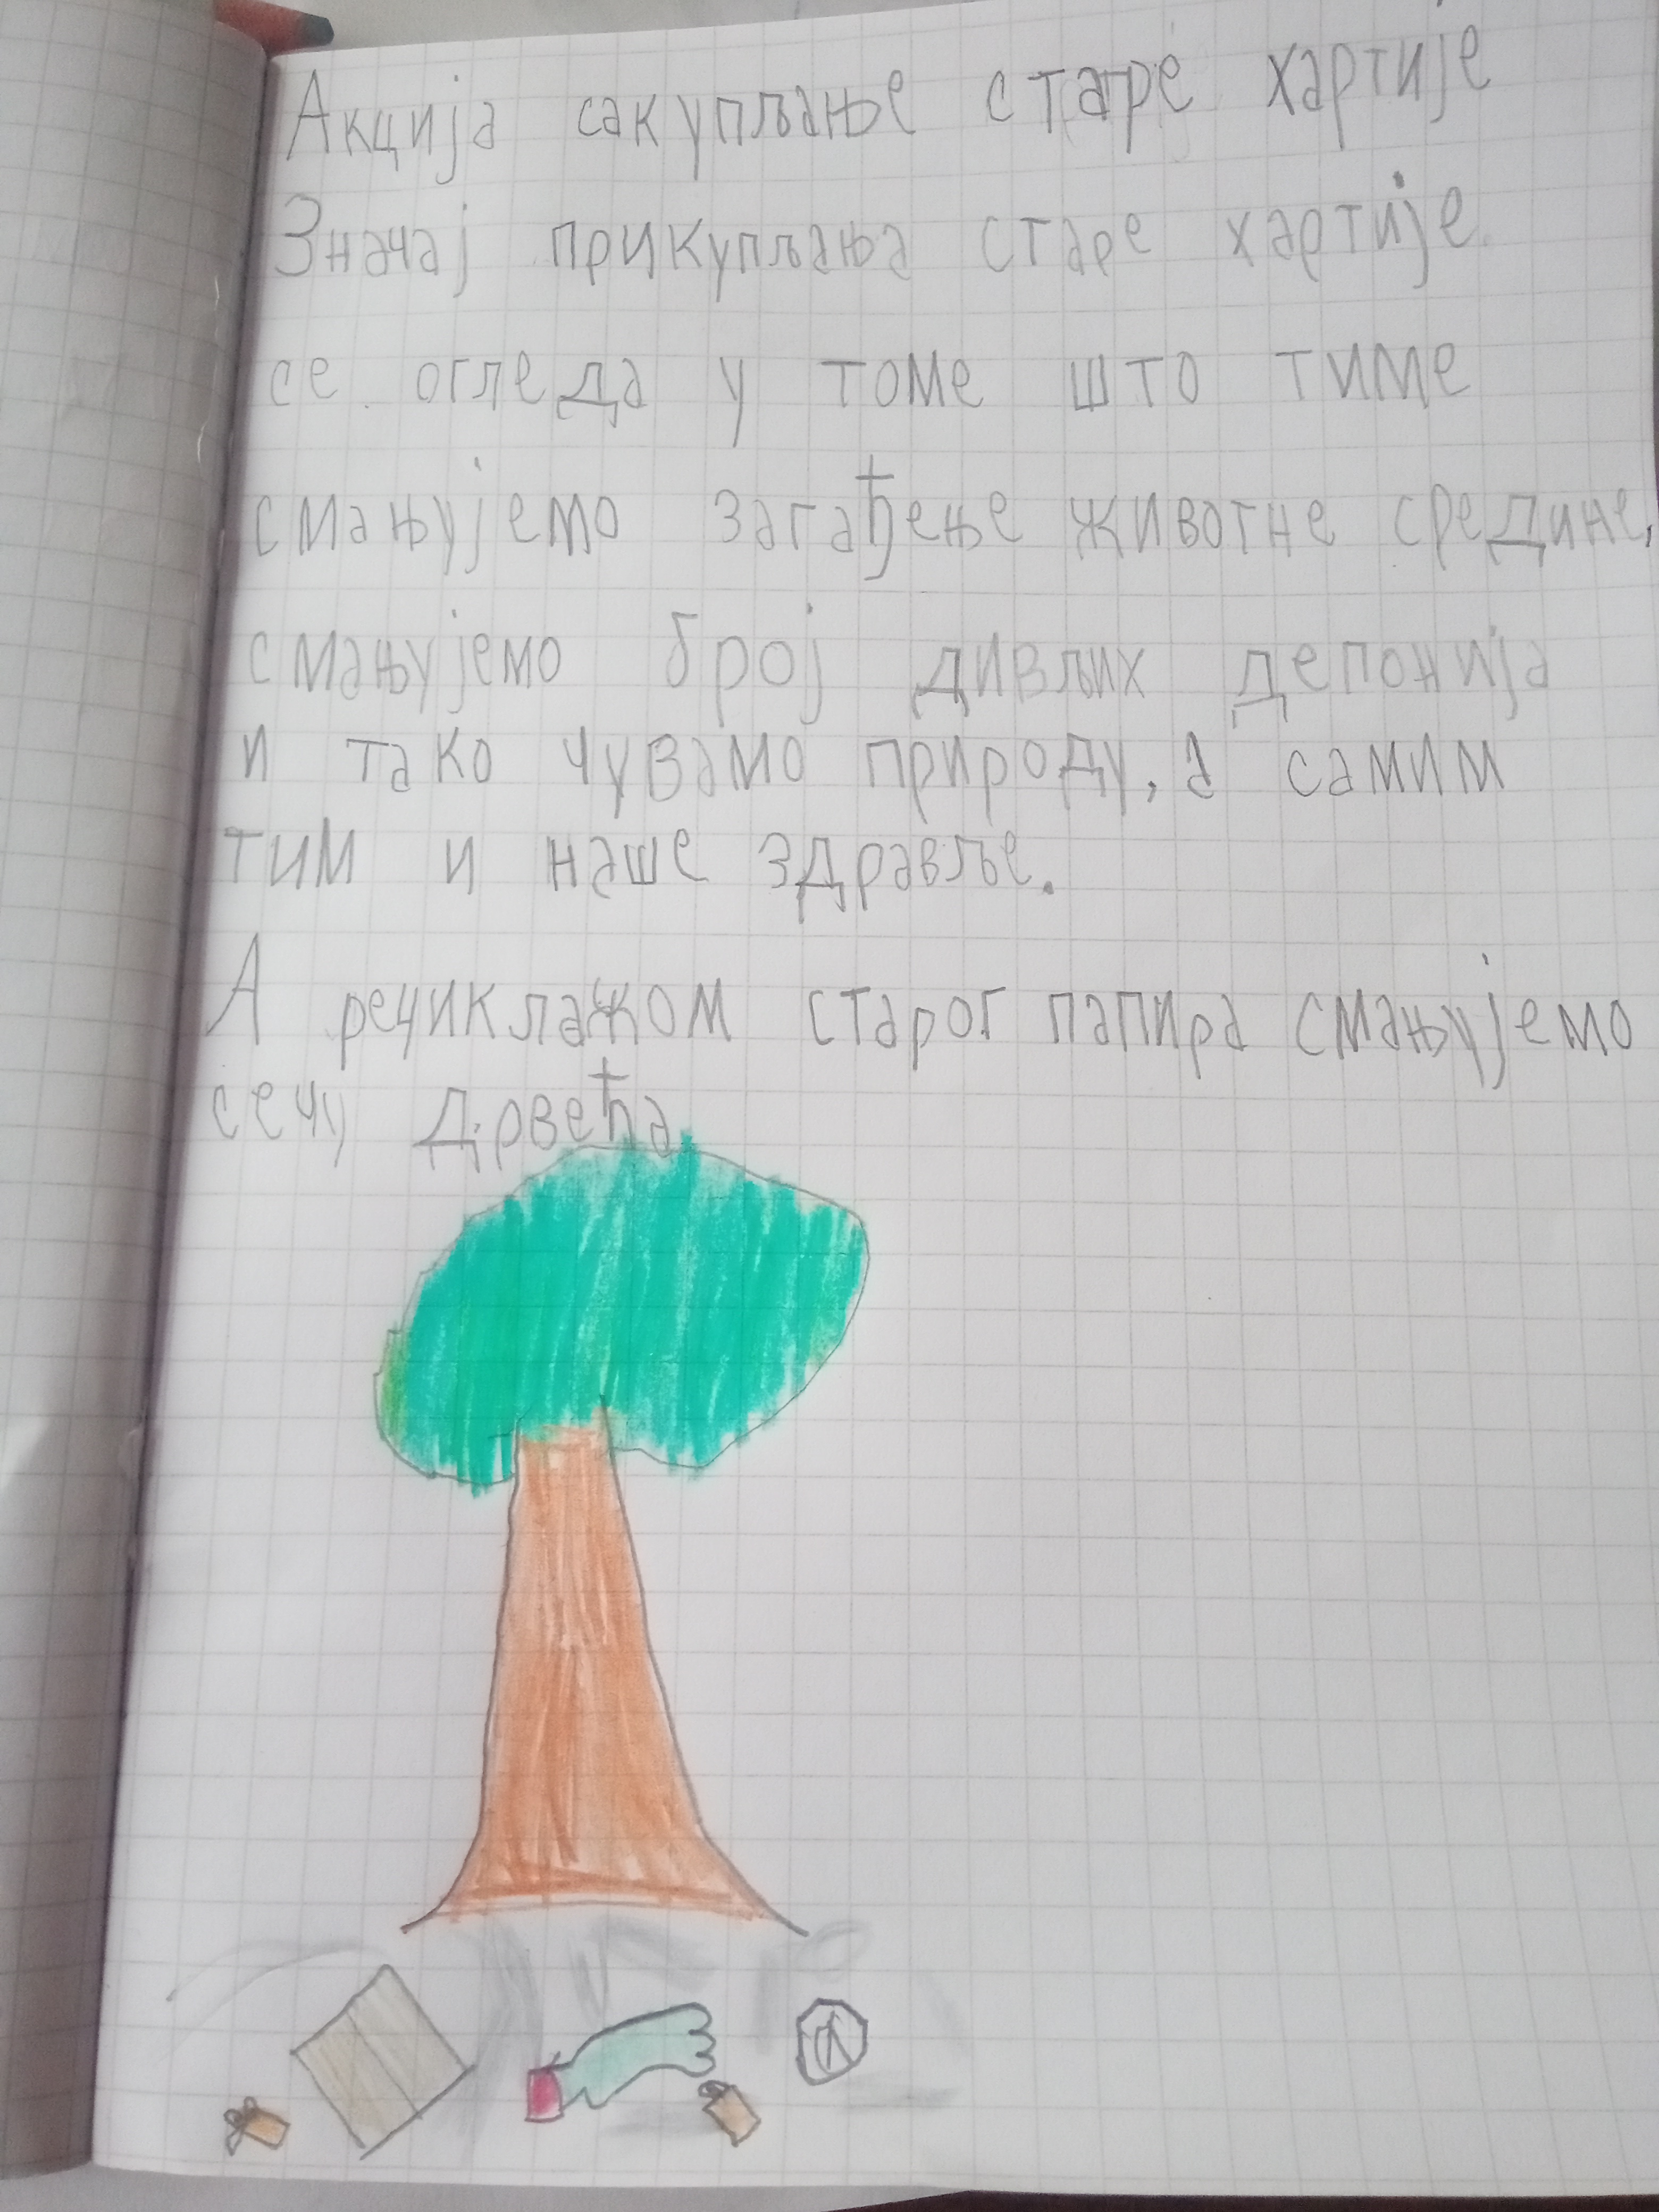 Акција сакупљање старе хартије
Значај прикупљања старе хартије
се огледа у томе што тиме
смањујемо загађење животне средине,
смањујемо број дивљих депонија
и тако чувамо природу, а самим
тим и наше здравље.
А рециклажом старог папира смањујемо
сечу дрвећа